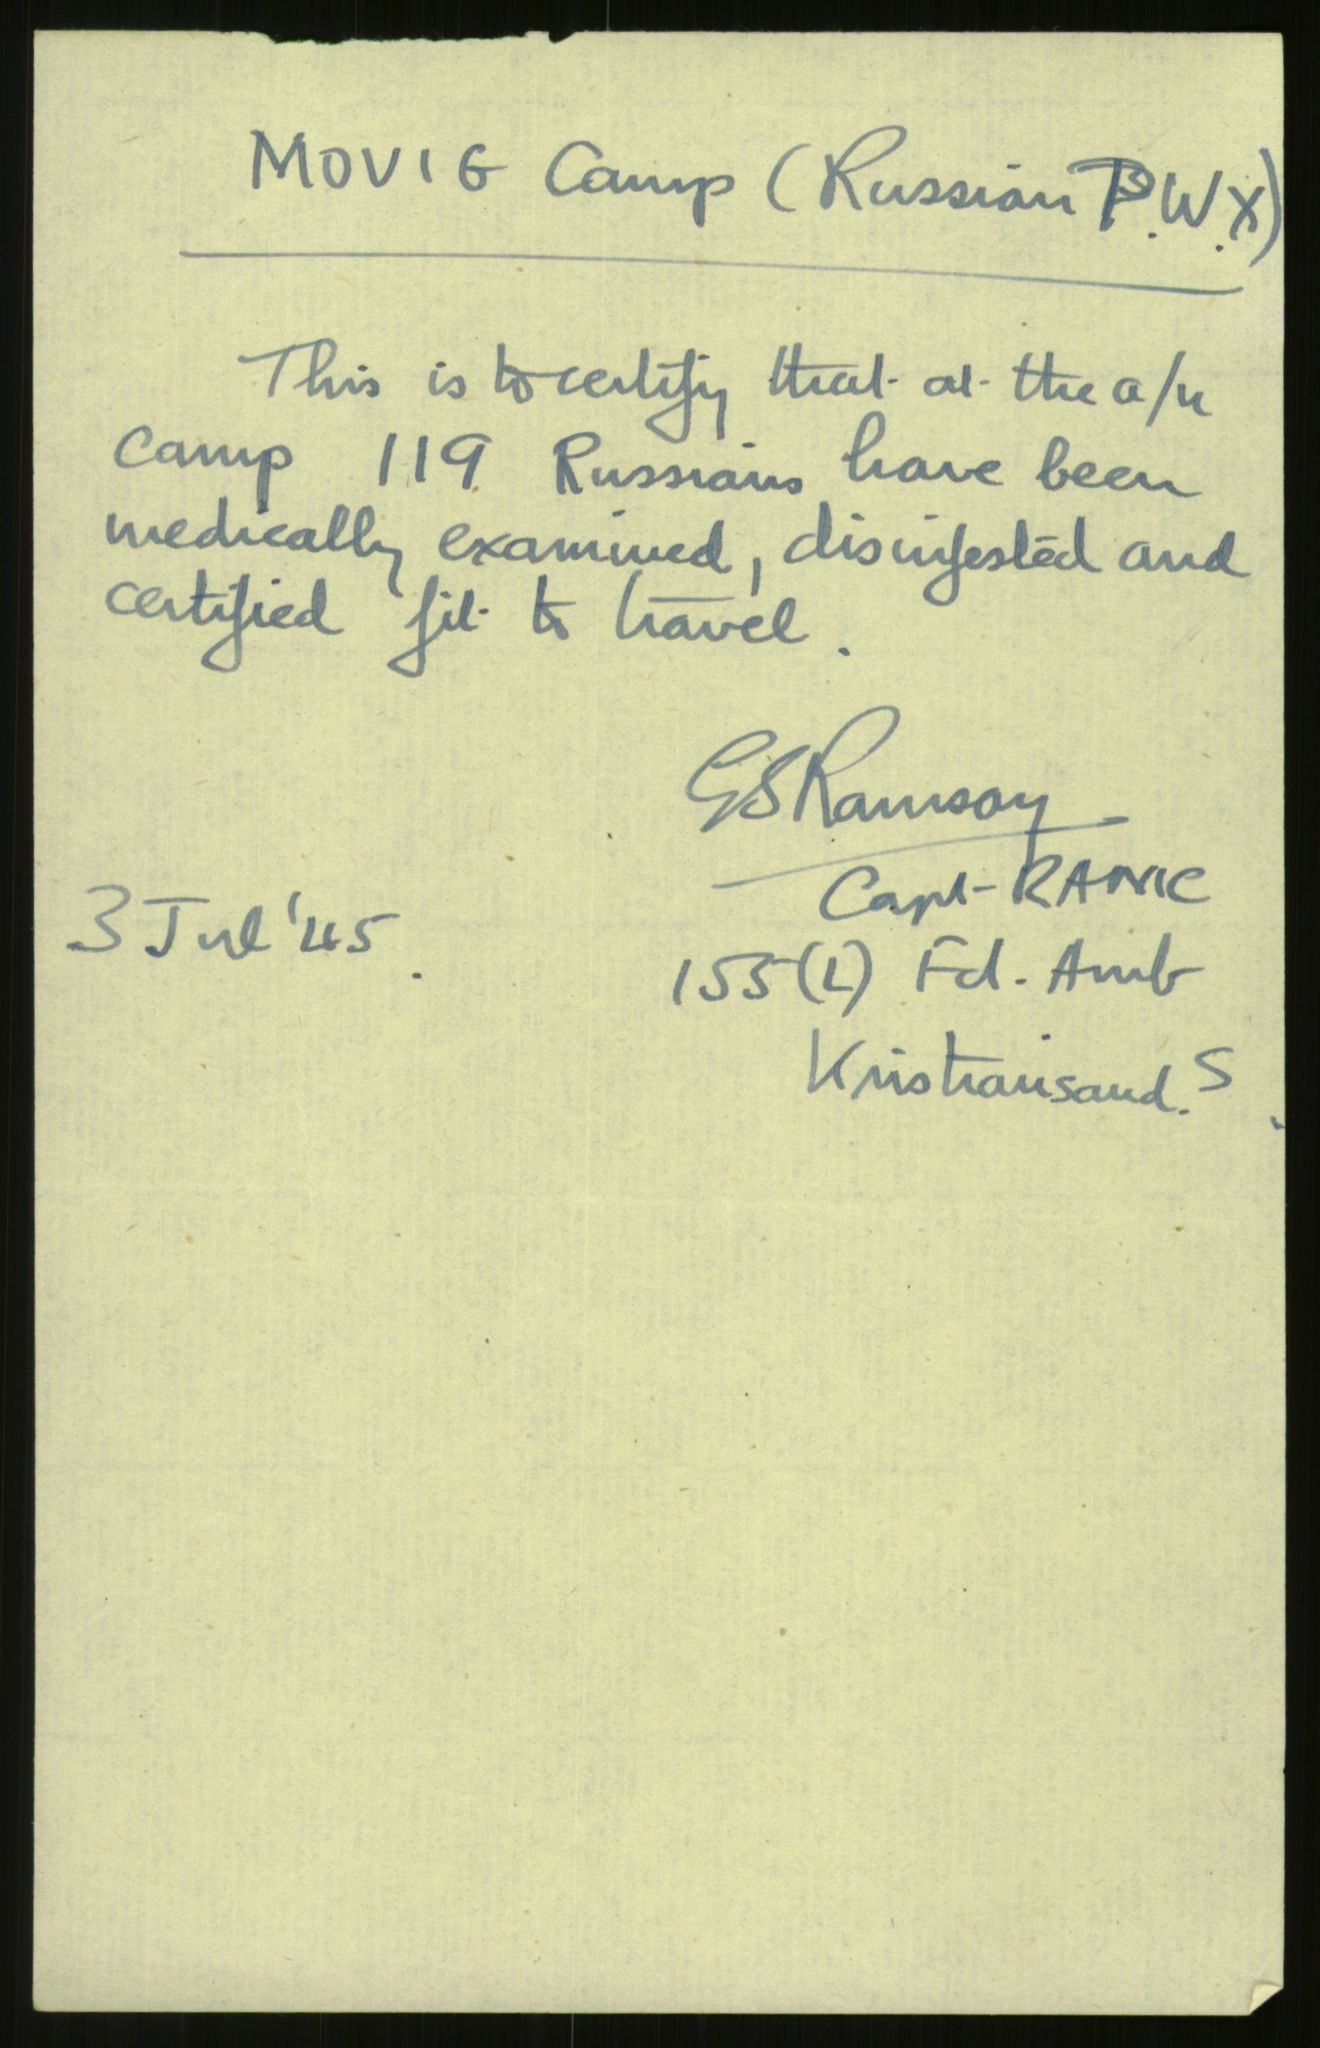 MOVIG Camp (Russian P.W.X)
This is to certify that at the a/n
camp 119 Russians have been
medically examined, disinfested and
certified fit to travel.
GSRamsay
Capt RAMC
3 Jul '45.
155(L) Fd. Amb
Kristiansand. S.